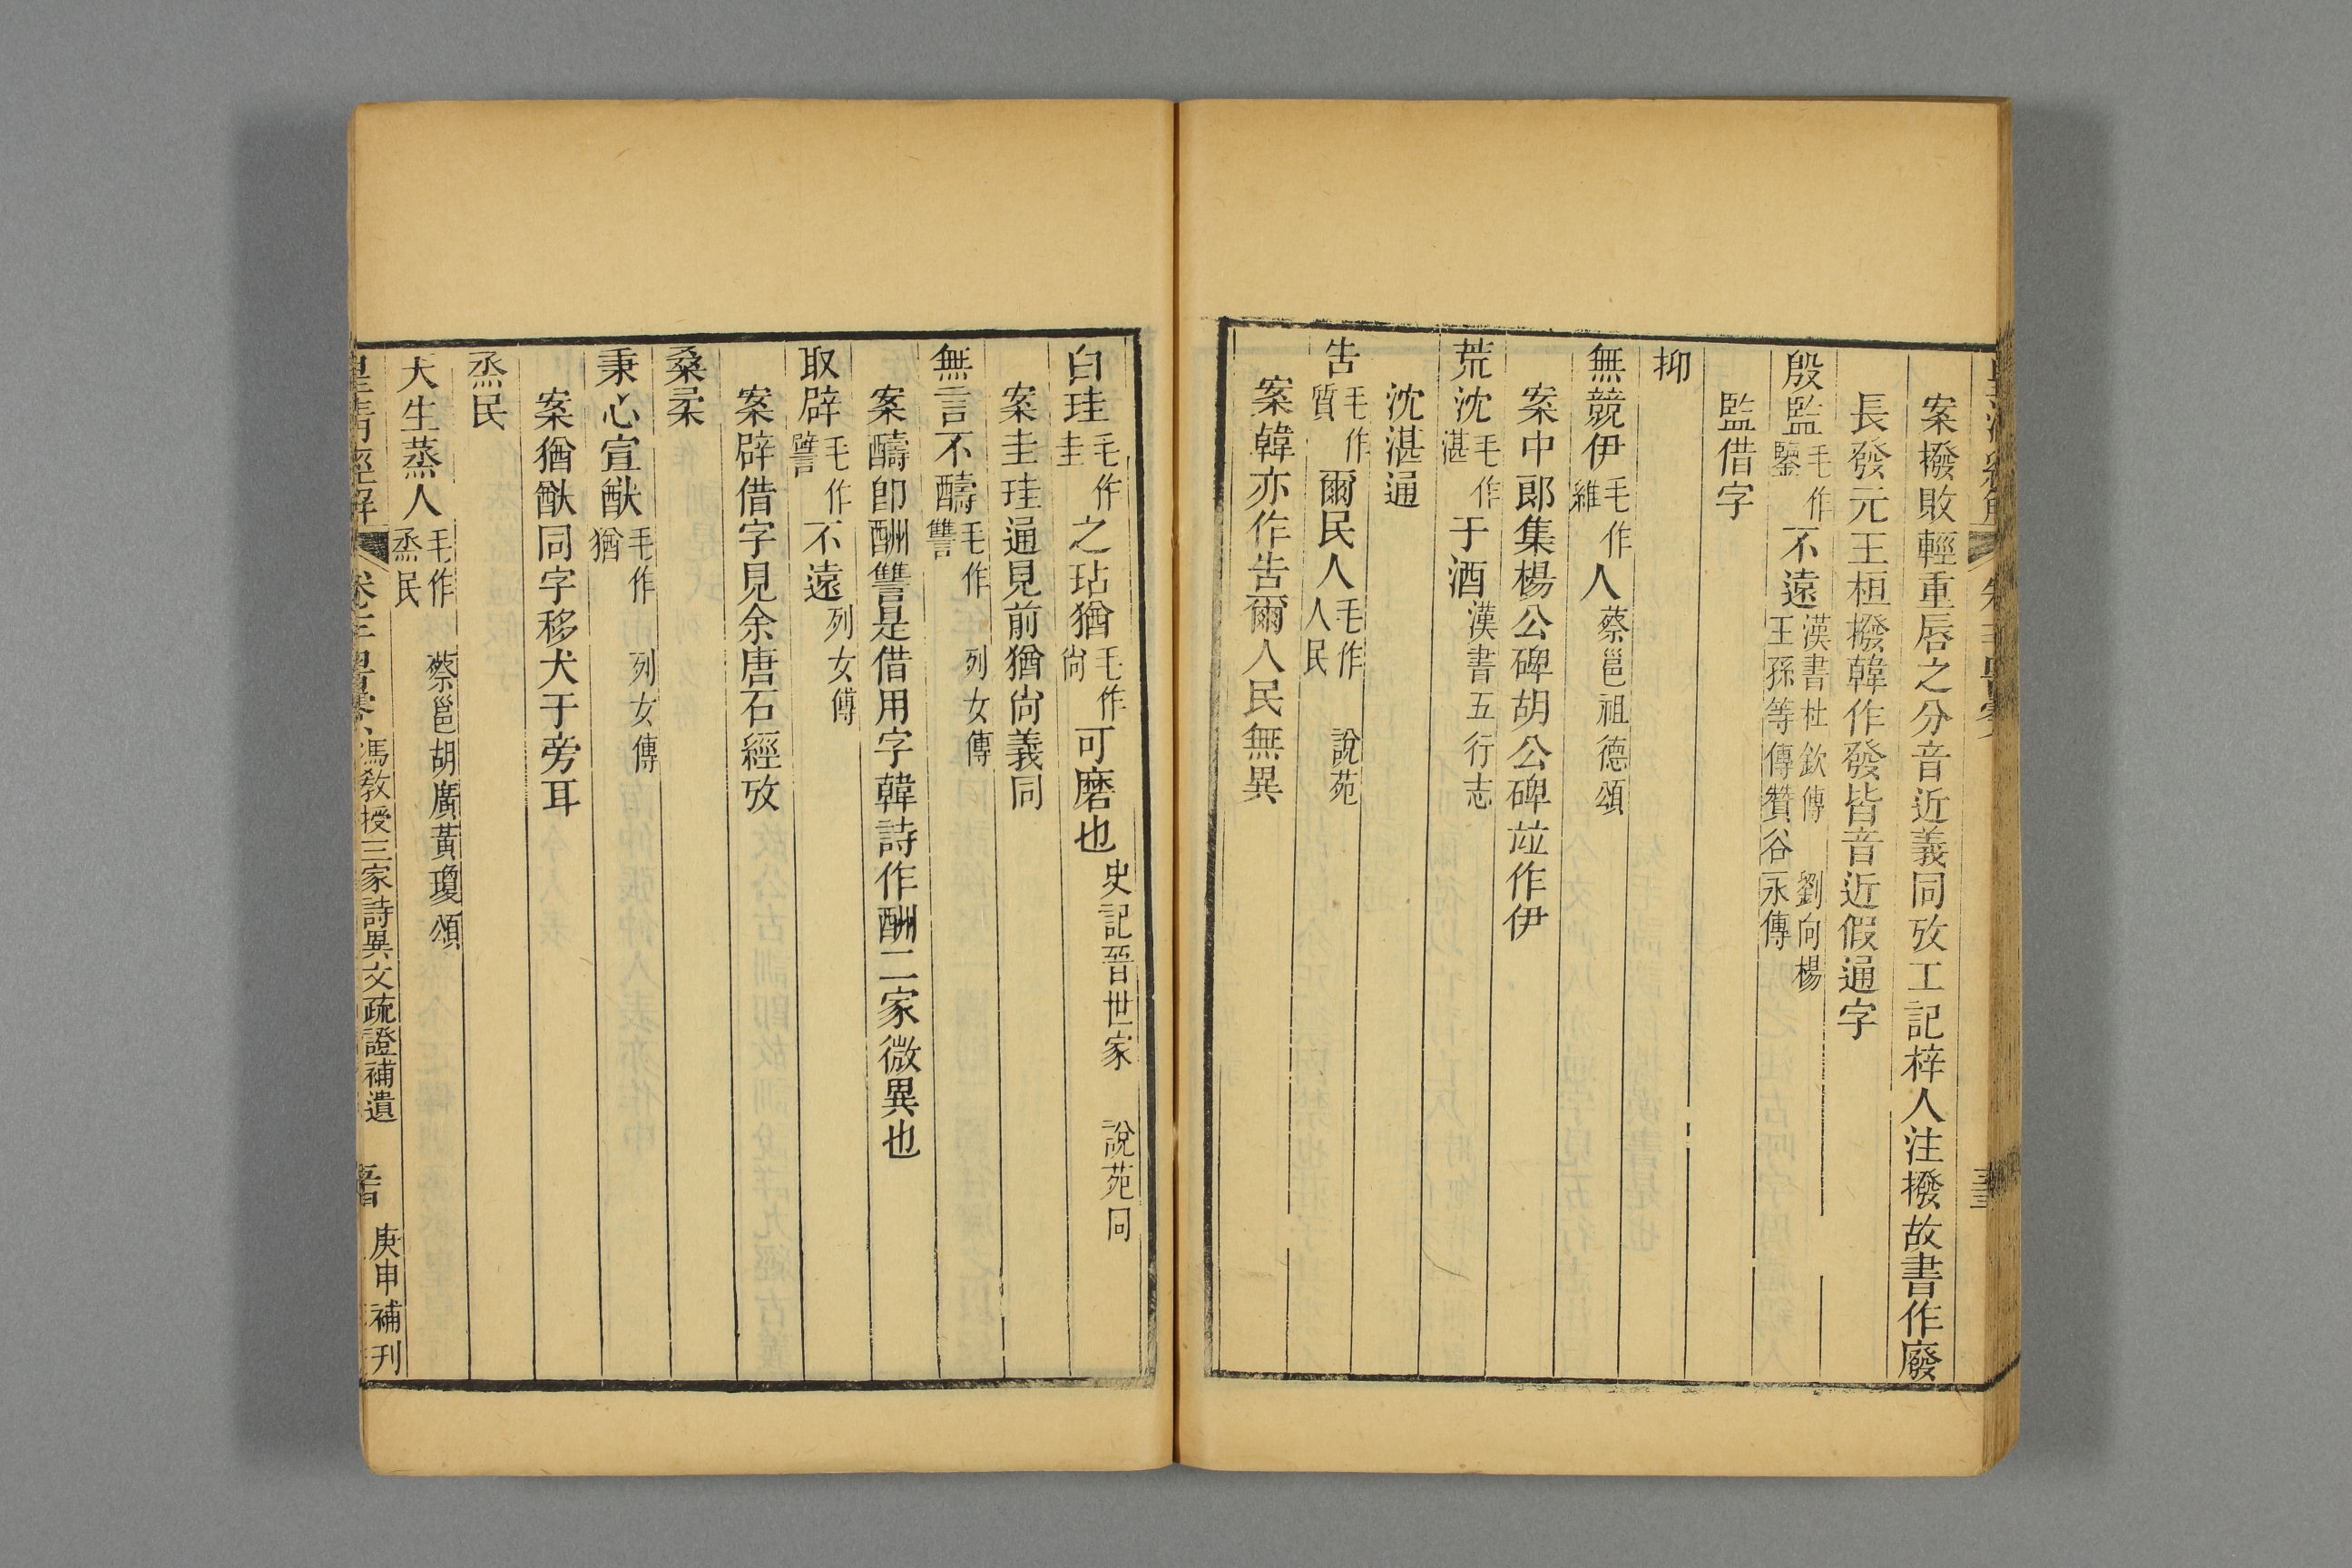 案撥敗輕重唇之分音近義同攷工記梓人注撥故書作廢
長發元王桓撥韓作發皆音近假通字
殷監毛作鑒不遠漢書杜欽傳 劉向楊王孫等傳贊谷永傳
監借字
抑
無競伊毛作維人蔡邕祖德頌
案中郎集楊公碑胡公碑竝作伊
荒沈毛作湛于酒漢書五行志
沈湛通
告毛作質爾民人毛作人民 說苑
案韓亦作告爾人民無異
白珪毛作圭之玷猶毛作尙可磨也史記晉世家 說苑同
案圭珪通見前猶尙義同
無言不醻毛作讐列女傳
案醻卽酬讐是借用字韓詩作酬二家微異也
取辟毛作譬不遠列女傳
案辟借字見余唐石經攷
桑柔
秉心宣猷毛作猶 列女傳
案猶猷同字移犬于旁耳
烝民
天生蒸人毛作烝民 蔡邕胡廣黃瓊頌
皇清經解 馮敎授三家詩異文疏證補遺 庚申補刊